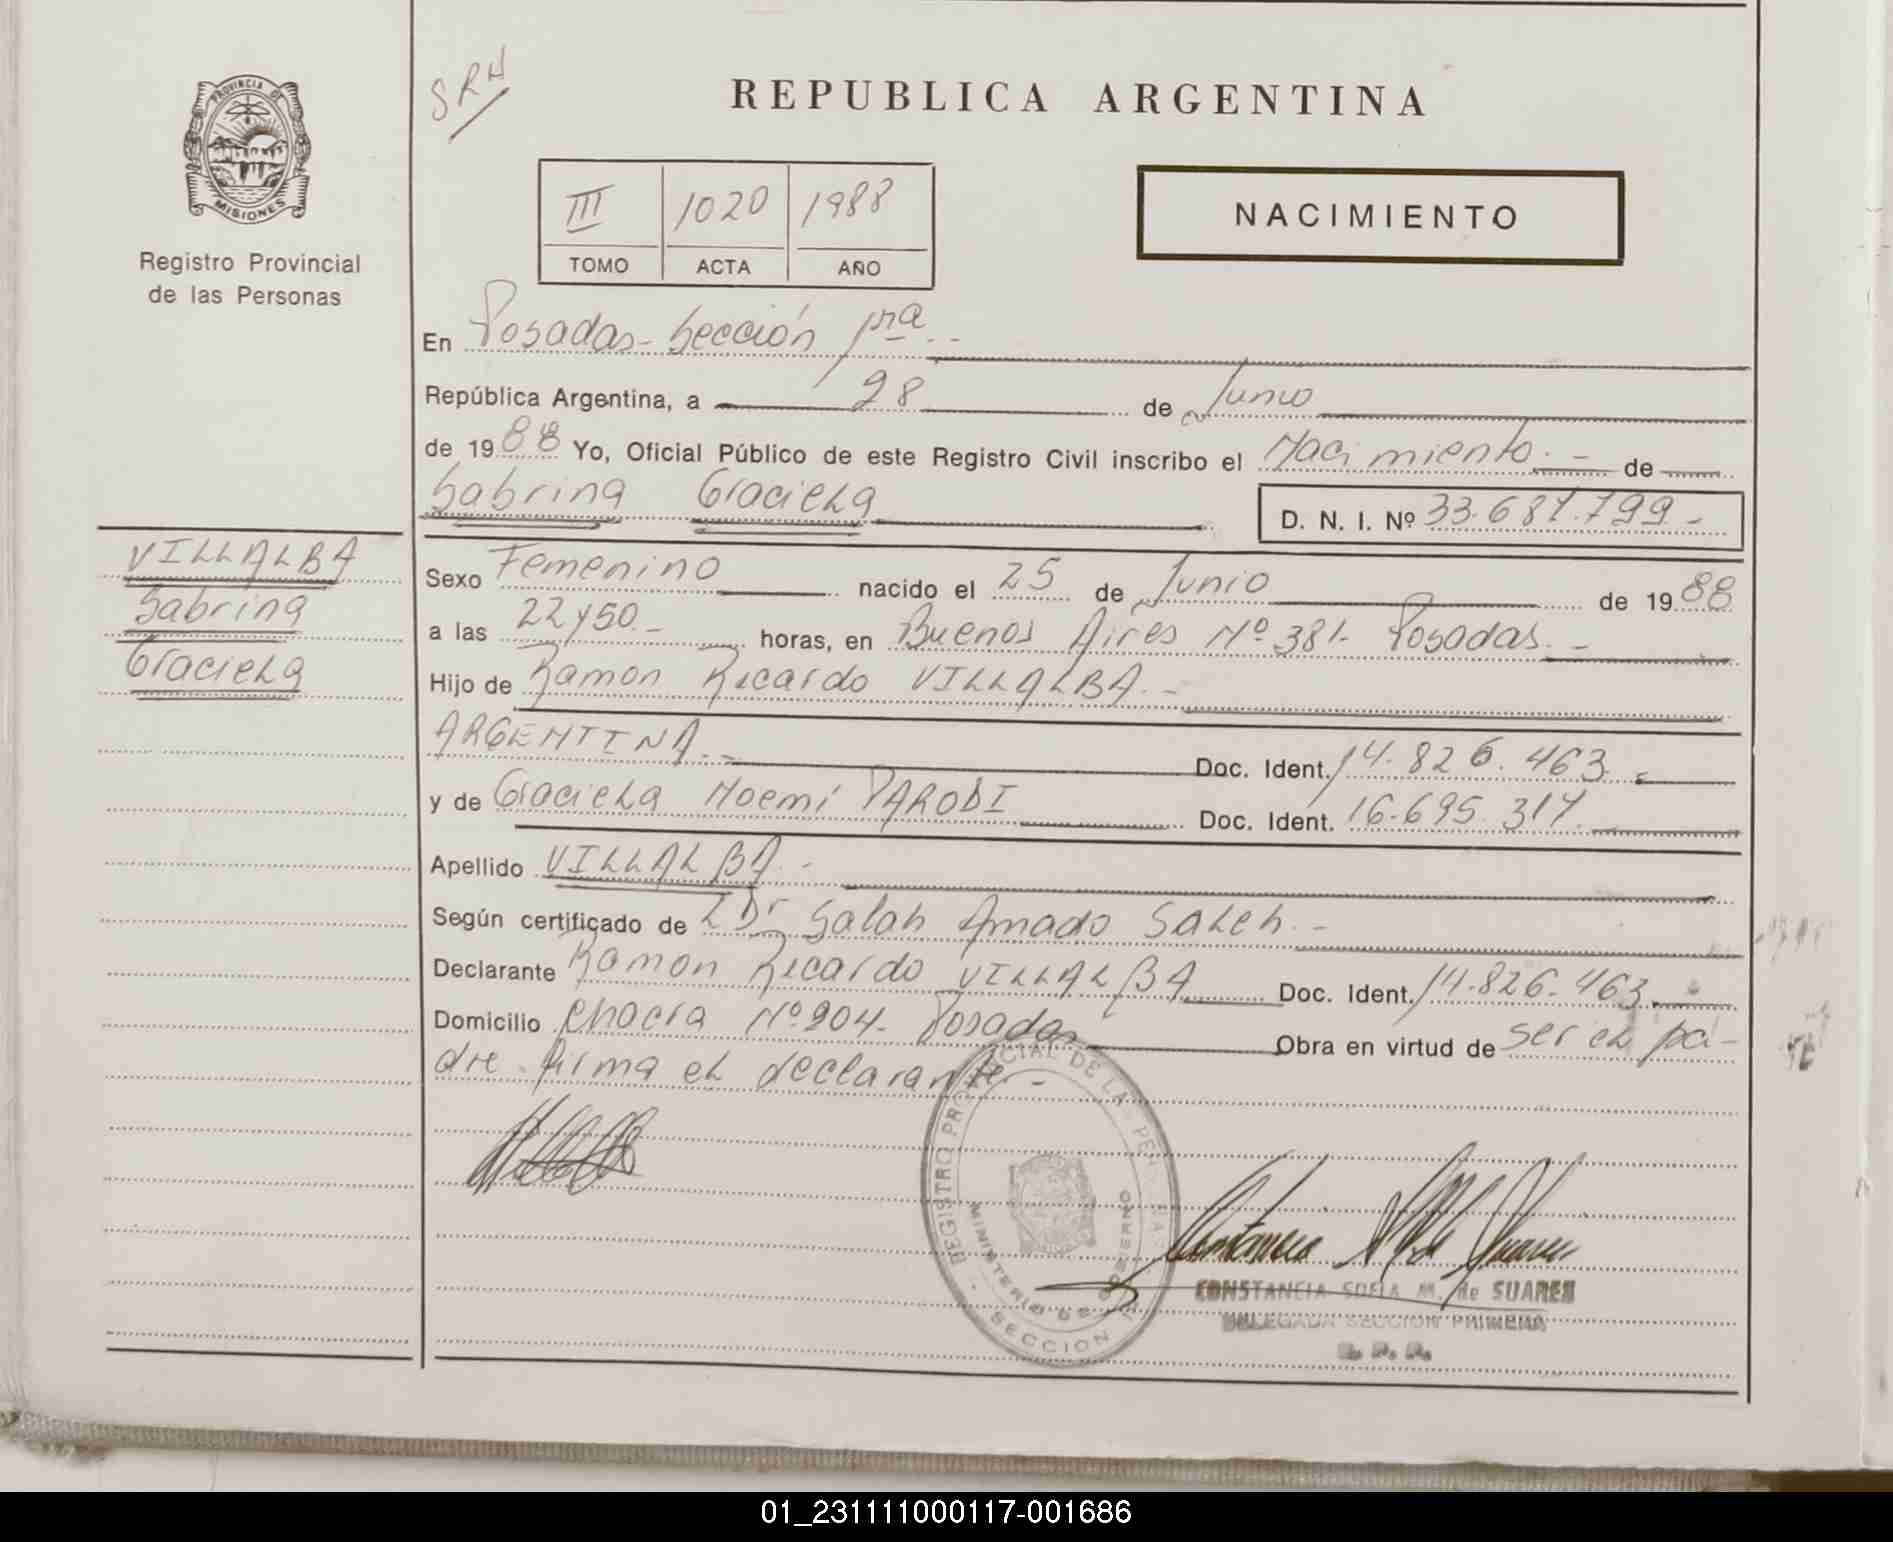 PROVINCIA DE
MISIONES
Registro Provincial
de las Personas
SRN
REPUBLICA ARGENTINA
III 1020 1988
TOMO ACTA AÑO
NACIMIENTO
En Posadas - Sección 1ra.-
República Argentina, a 28 de Junio
de 1988 Yo, Oficial Público de este Registro Civil inscribo el Nacimiento.- de
Sabrina Graciela D. N. I. Nº 33.687.799-
VILLALBA
Sabrina
Graciela
Sexo Femenino nacido el 25 de Junio de 1988
a las 22 y 50.- horas, en Buenos Aires Nº 381- Posadas.-
Hijo de Ramon Ricardo VILLALBA.-
ARGENTINA.- Doc. Ident. 14.826.463.
y de Graciela Noemí PARODI Doc. Ident. 16.695.317.
Apellido VILLALBA.-
Según certificado de Dr Salah Amado Saleh.-
Declarante Ramon Ricardo VILLALBA Doc. Ident. 14.826.463.
Domicilio Chacra Nº 204- Posadas Obra en virtud de ser el pa-
dre. firma el declarante.-
REGISTRO PROVINCIAL DE LA PERSONAS
MINISTERIO DE GOBIERNO
SECCION
Constancia M. de Suarez
CONSTANCIA SOFIA M. de SUAREZ
DELEGADA SECCION PRIMERA
R. P. P.
01_231111000117-001686